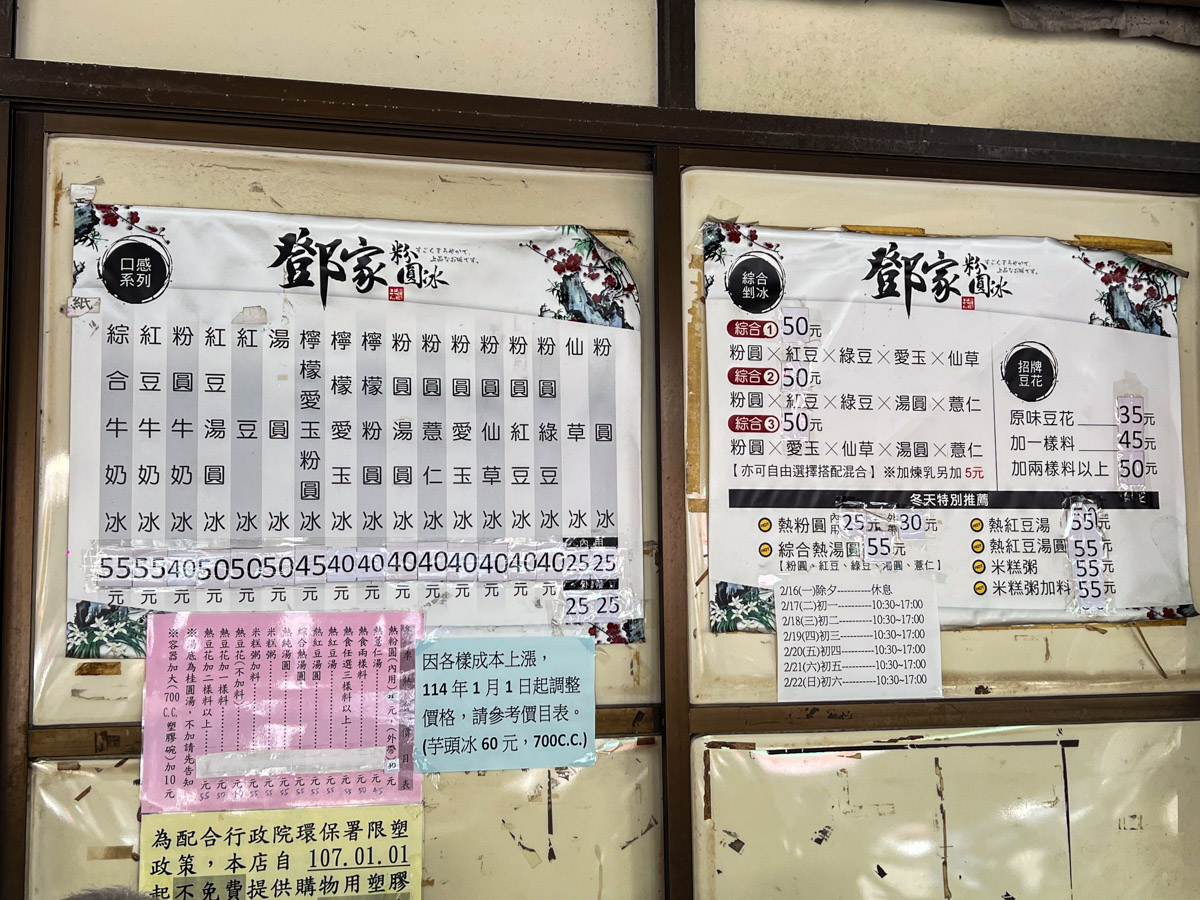 口感
系列
鄧家
粉圓冰
すごくまろやかで、
上品なお味です。
紙
粉圓冰 25元
仙草冰 25元
粉圓綠豆冰 40元
粉圓紅豆冰 40元
粉圓仙草冰 40元
粉圓愛玉冰 40元
粉圓薏仁冰 40元
粉圓湯圓冰 40元
檸檬粉圓冰 40元
檸檬愛玉冰 40元
檸檬愛玉粉圓冰 45元
湯圓冰 50元
紅豆冰 50元
紅豆湯圓冰 50元
粉圓牛奶冰 40元
紅豆牛奶冰 55元
綜合牛奶冰 55元
內用
25 25
綜合
剉冰
鄧家
粉圓冰
すごくまろやかで、
上品なお味です。
綜合1 50元
粉圓×紅豆×綠豆×愛玉×仙草
綜合2 50元
粉圓×紅豆×綠豆×湯圓×薏仁
綜合3 50元
粉圓×愛玉×仙草×湯圓×薏仁
【亦可自由選擇搭配混合】※加煉乳另加5元
招牌
豆花
原味豆花 35元
加一樣料 45元
加兩樣料以上 50元
冬天特別推薦
熱粉圓 內用25元 外帶30元
綜合熱湯圓 55元
【粉圓、紅豆、綠豆、湯圓、薏仁】
熱紅豆湯 55元
熱紅豆湯圓 55元
米糕粥 55元
米糕粥加料 55元
2/16(一)除夕---------休息
2/17(二)初一----------10:30~17:00
2/18(三)初二----------10:30~17:00
2/19(四)初三----------10:30~17:00
2/20(五)初四----------10:30~17:00
2/21(六)初五----------10:30~17:00
2/22(日)初六----------10:30~17:00
價目表
熱粉圓(內用25元)(外帶30元
熱薏仁湯 45元
熱食兩樣料 50元
熱食任選三樣料以上 55元
熱紅豆湯 55元
熱紅豆湯圓 55元
綜合熱湯圓 55元
熱純湯圓 55元
米糕粥 55元
米糕粥加料 55元
熱豆花(不加料) 元
熱豆花加一樣料 50元
熱豆花加二樣料以上 55元
※湯底為桂圓湯,不加請先告知
※容器加大(700C.C.塑膠碗)加10元
因各樣成本上漲,
114年1月1日起調整
價格,請參考價目表。
(芋頭冰60元,700C.C.)
為配合行政院環保署限塑
政策,本店自 107.01.01
起不免費提供購物用塑膠